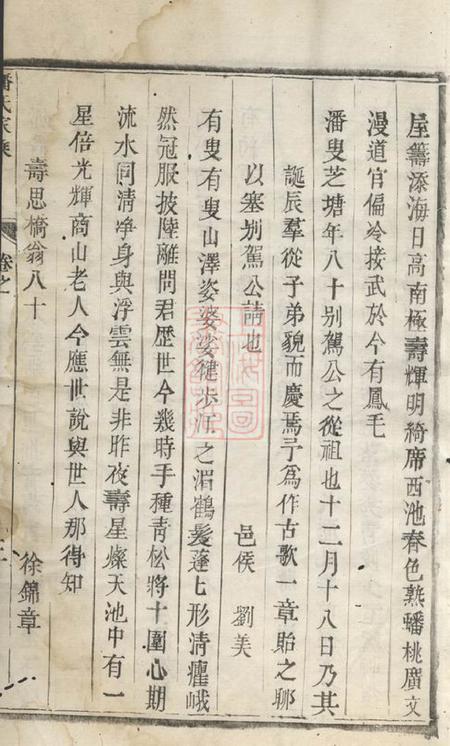 屋籌添海日高南極壽輝明綺席西池春色熟蟠桃廣文
漫道官偏冷接武於今有鳳毛
潘叟芝塘年八十別駕公之從祖也十二月十八日乃其
誕辰羣從子弟貌而慶焉予爲作古歌一章貽之聊
以塞別駕公請也
邑侯 劉美
有叟有叟山澤姿婆娑健步江之湄鶴髮蓬匕形清癯峨
然冠服披陸離問君歷世今幾時手種青松將十圍心期
流水同清淨身與浮雲無是非昨夜壽星燦天池中有一
星倍光輝商山老人今應世說與世人那得知
壽思橋翁八十
徐錦章
潘氏家乘
卷之